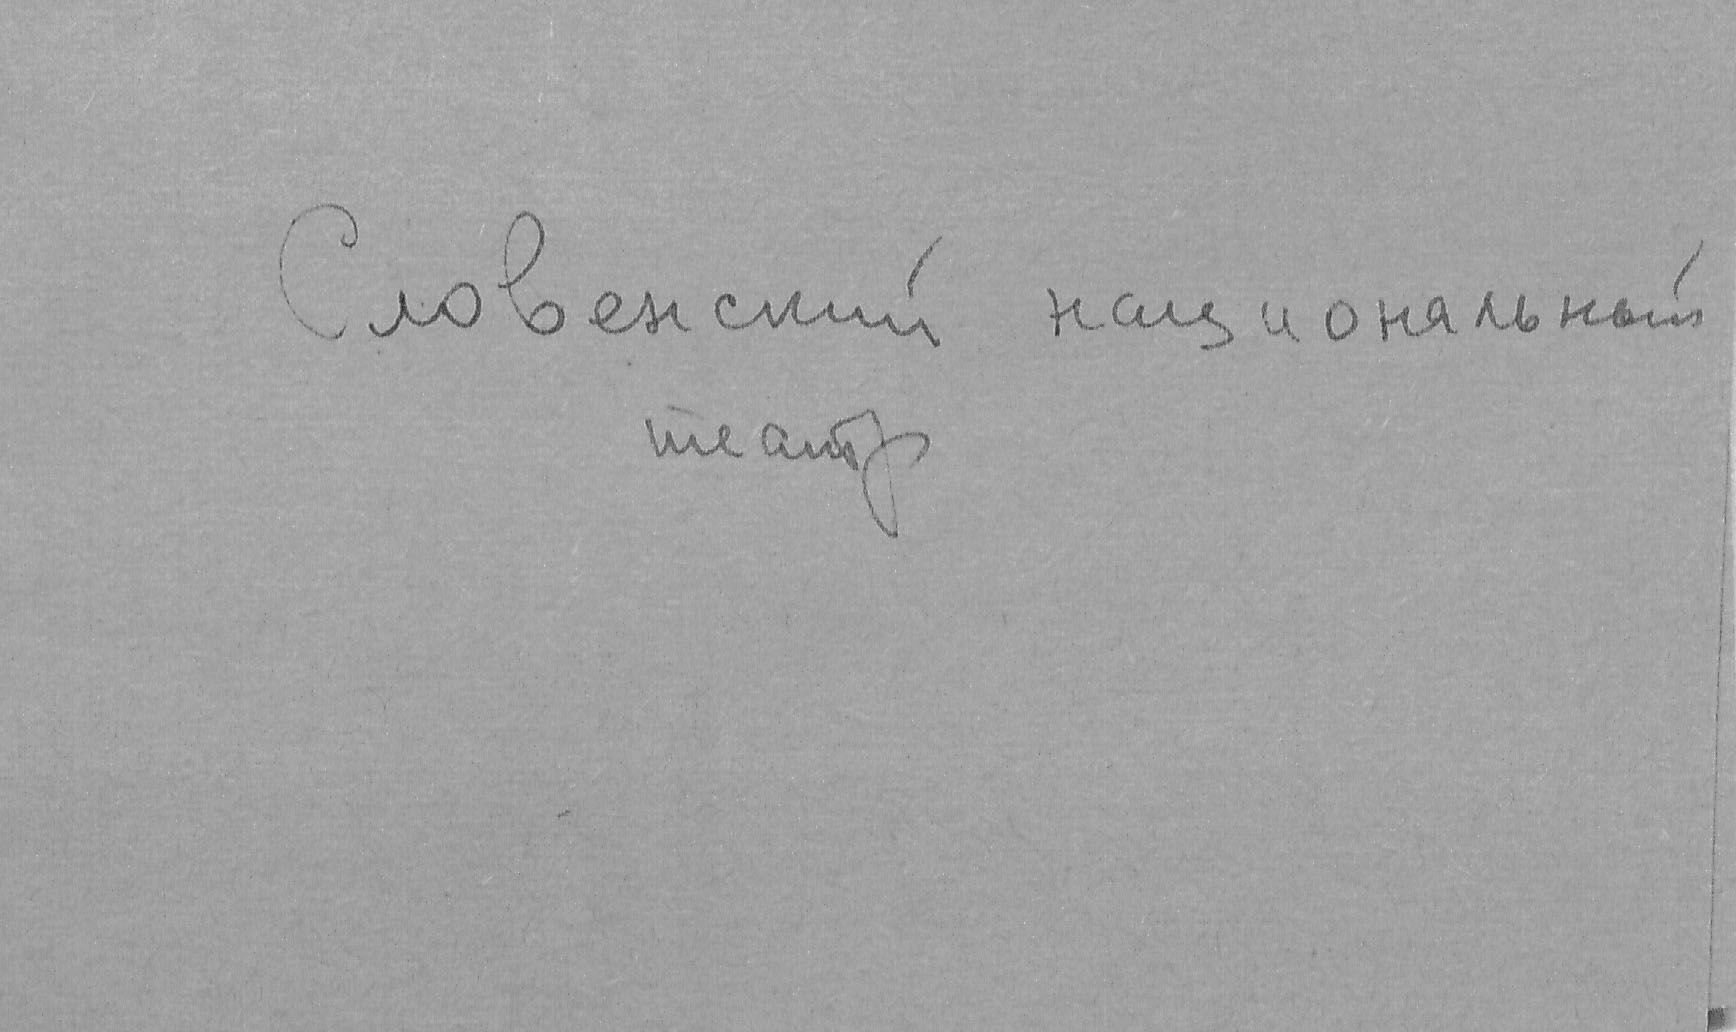 Словенский национальный
театр